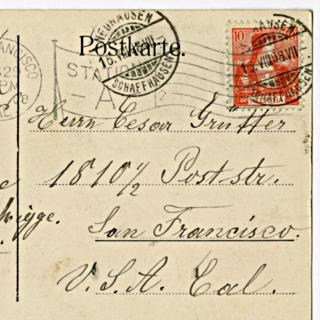 Postkarte.
NEUHAUSEN
SCHAFFHAUSEN
FRANCISCO
STATION
A
10
HELVETIA
Herrn Cesar Grütter
1810½ Post str.
San Francisco.
U.S.A. Cal.